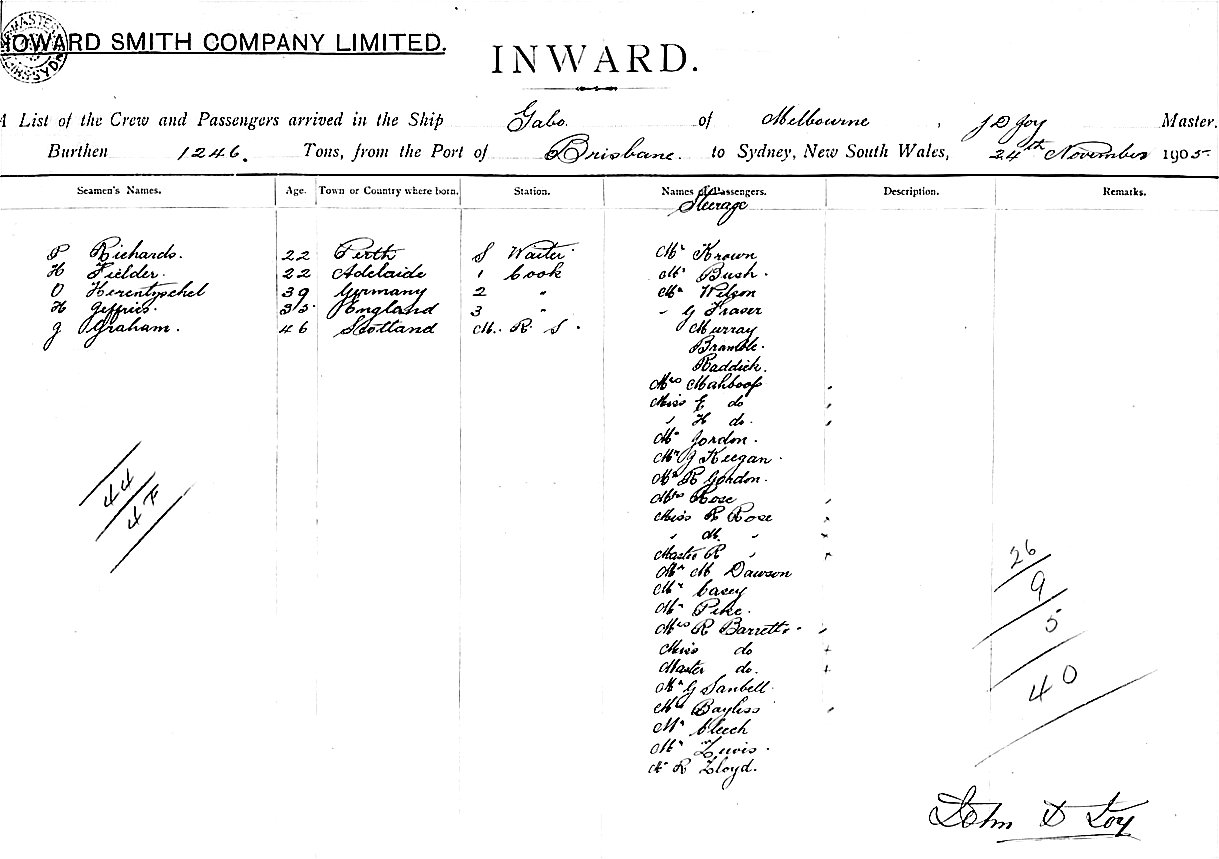 HOWARD SMITH COMPANY LIMITED.
INWARD.
A List of the Crew and Passengers arrived in the Ship Gabo of Melbourne, J D Joy Master.
Burthen 1246. Tons, from the Port of Brisbane. to Sydney, New South Wales, 24th November 1905.
Seamen's Names. Age. Town or Country where born. Station. Names of Passengers. Description. Remarks.
Steerage
P Richards. 22 Perth S Waiter Mr Krown
H Fielder. 22 Adelaide 1 Cook Mr Bush.
O Herentzschel 39 Germany 2 " Mr Wilson
H Jeffries. 35 England 3 " " G Fraser
J Graham. 46 Scotland M. R. S. Murray
Bramble.
Raddick.
Mrs Mahboof
Miss E do
" H do.
Mr Jordon.
Mr J Keegan.
Mr R Gordon.
Mrs Rose
Miss R Rose
" M. "
Master R "
Mr M Dawson
Mr Casey
Mr Pike.
Mrs R Barretts.
Miss do
Master do.
Mr G Sanbell.
Mrs Bayliss
Mr Cleech
Mr Lewis.
Mr R Lloyd.
44
47
26
9
5
40
John D Joy